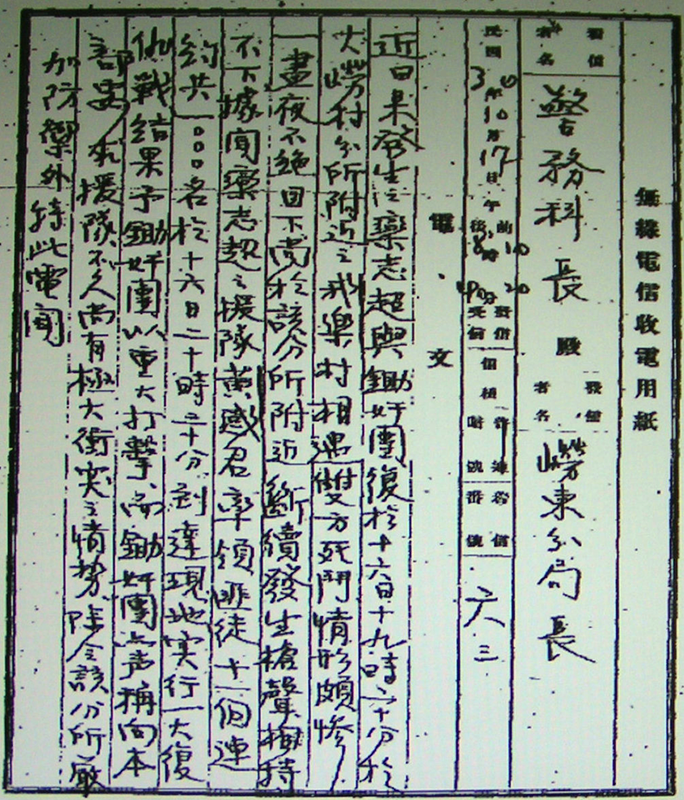 無線電信收電用紙
著信者名 警務科長 殿 發信者名 勞東分局長
民國30年10月17日午 前後 10時20分 發信
8時40分 受信
六三
電文
近日來發生之藥志超與鋤奸團復於十六日十九時二十分於
大嶗村分所附近之我樂村相遇雙方死鬥情形頗慘
一晝夜不絕目下尚於該分所附近斷續發生槍聲相持
不下據聞藥志超之援隊黃咸君率領匪徒十一個連
約共一000名於十六日二十時二十分到達現地实行一大復
仇戰結果予鋤奸團以重大打擊而鋤奸團亦声稱向本
部要求援隊不久尚有極大衝突之情势除令該分所嚴
加防禦外特此電聞